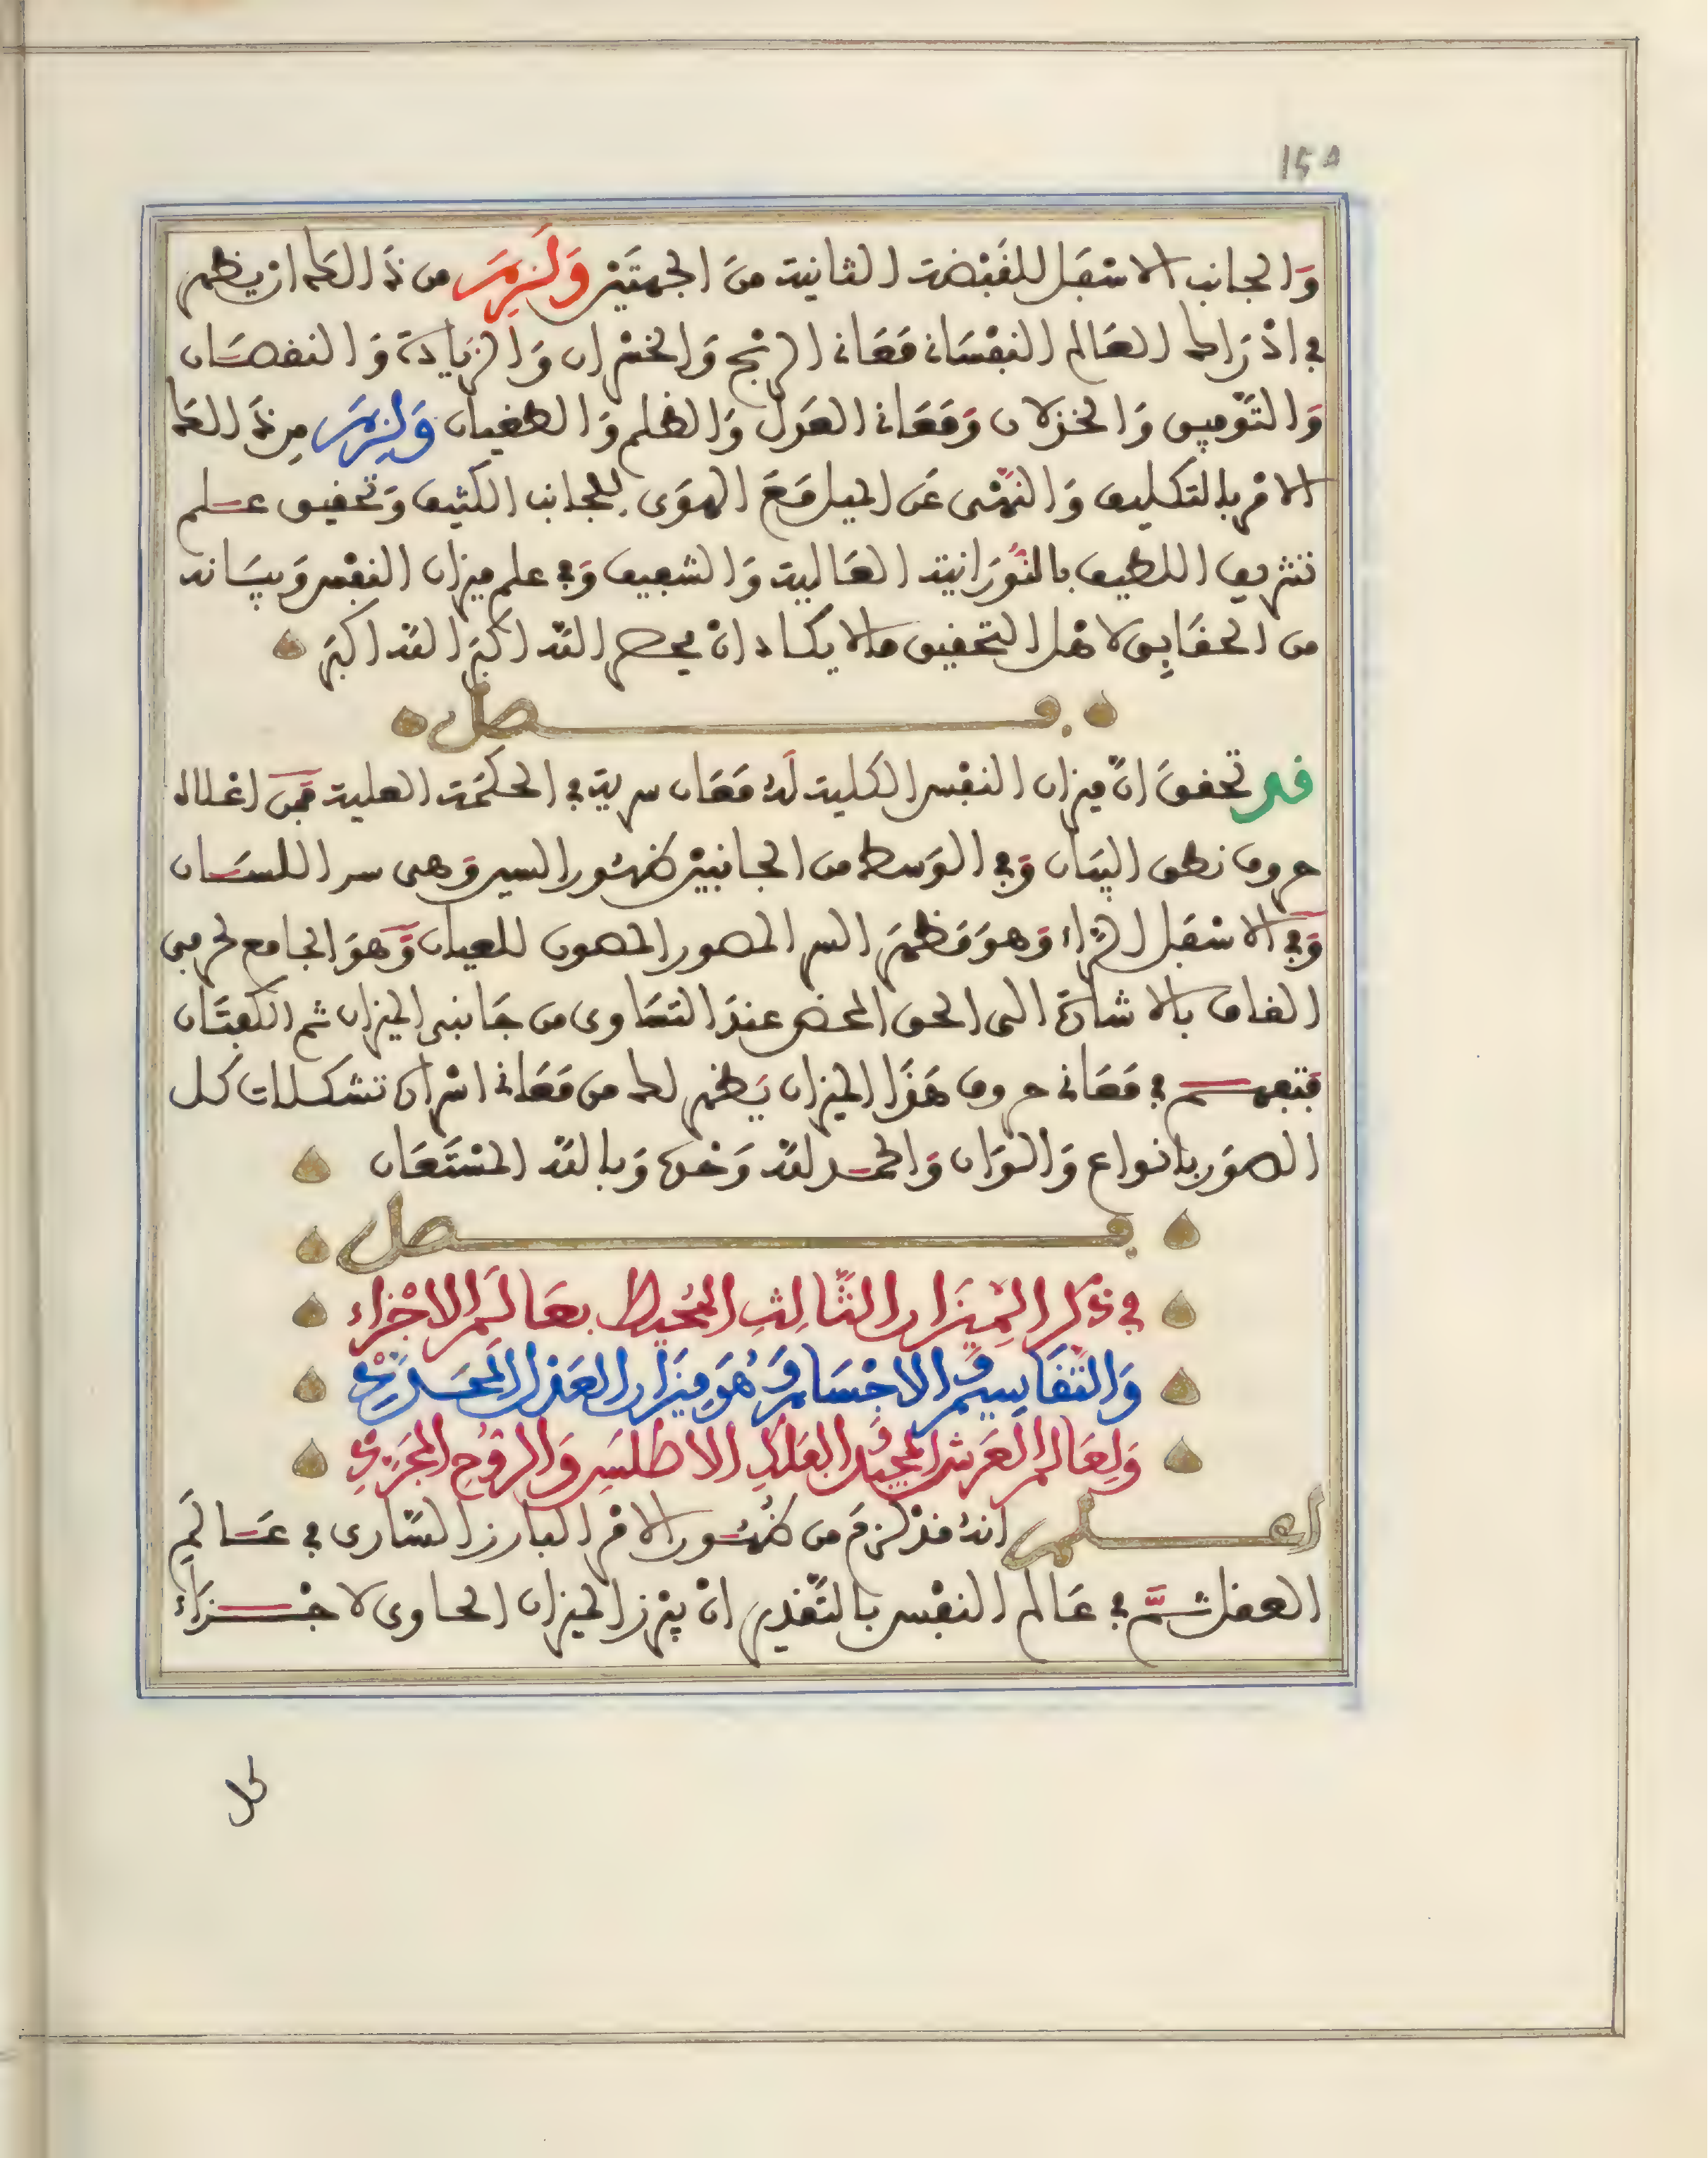 ١٤٥
وَالجانب الاسْفل للقَبْضة الثانية منَ الجهتَيْن وَلَزِمَ من ذَالكَ ان يظهر
في ادْرَاك العَالم النفْسَاني مَعَاني الربْح وَالخسْران وَالزيَادة وَالنقصَان
وَالتَّوْفيق وَالخذلان وَمَعَاني العَدل وَالظلم وَالطغيان وَلزِمَ مِن ذَالكَ
الامْر بالتكليف وَالنهْي عَن الميل مَعَ الهوَى للجانب الكثيف وَتحقيق علم
تشريف اللطيف بالنُّورَانية العَالية وَالشفيف وَفي علم ميزان النفْس وَبيَانه
من الحقَايق لاهْل التحقيق ما لا يكاد انْ يحصر اللّه اكبَر اللّه اكبَر
فصل
قد تحققَ انّ ميزان النفْس الكلية لَهُ مَعَان سرية في الحكمَة العلية فمِن اعْلاه
حروف نطق البيَان وَفي الوَسط من الجانبيْن ظهُور السير وَهى سر اللسَان
وَفي الاسْفل الرَّاء وَهوَ مَظهَر السر المصور المصون للعيان وَهوَ الجامع لحرفى
القاف بالاشارَة الى الحق المحْض عندَ التسَاوى من جَانبى الميزان ثم الكفتَان
فتفهم في مَعَاني حروف هَذَا الميزان يَظهر لك من مَعَاني اسْرار تشكلات كل
الصوَر بانواع وَالوَان وَالحمد للّه وَحْدهُ وَباللّه المسْتَعَان
فصل
في ذِكْر المِيزَان الثَّالِثِ المُحيط بِعَالَم الاجْزَاء
وَالتَّقَاسِيم وَالاجْسَام وَهُوَ مِيزَان العَدْل المحَمَّدِىّ
وَلِعَالم العَرش المجِيد وَالفلَك الاطْلَسِ وَالرُّوح الجَزئىّ
اعلم انهُ قدْ لزمَ من ظهُور الامْر البارز السَّارى في عَالَمِ
العقل ثمَّ في عَالم النفْس بالتّقْدير انْ يبْرز الميزان الحاوى لاجْزَاء
كل